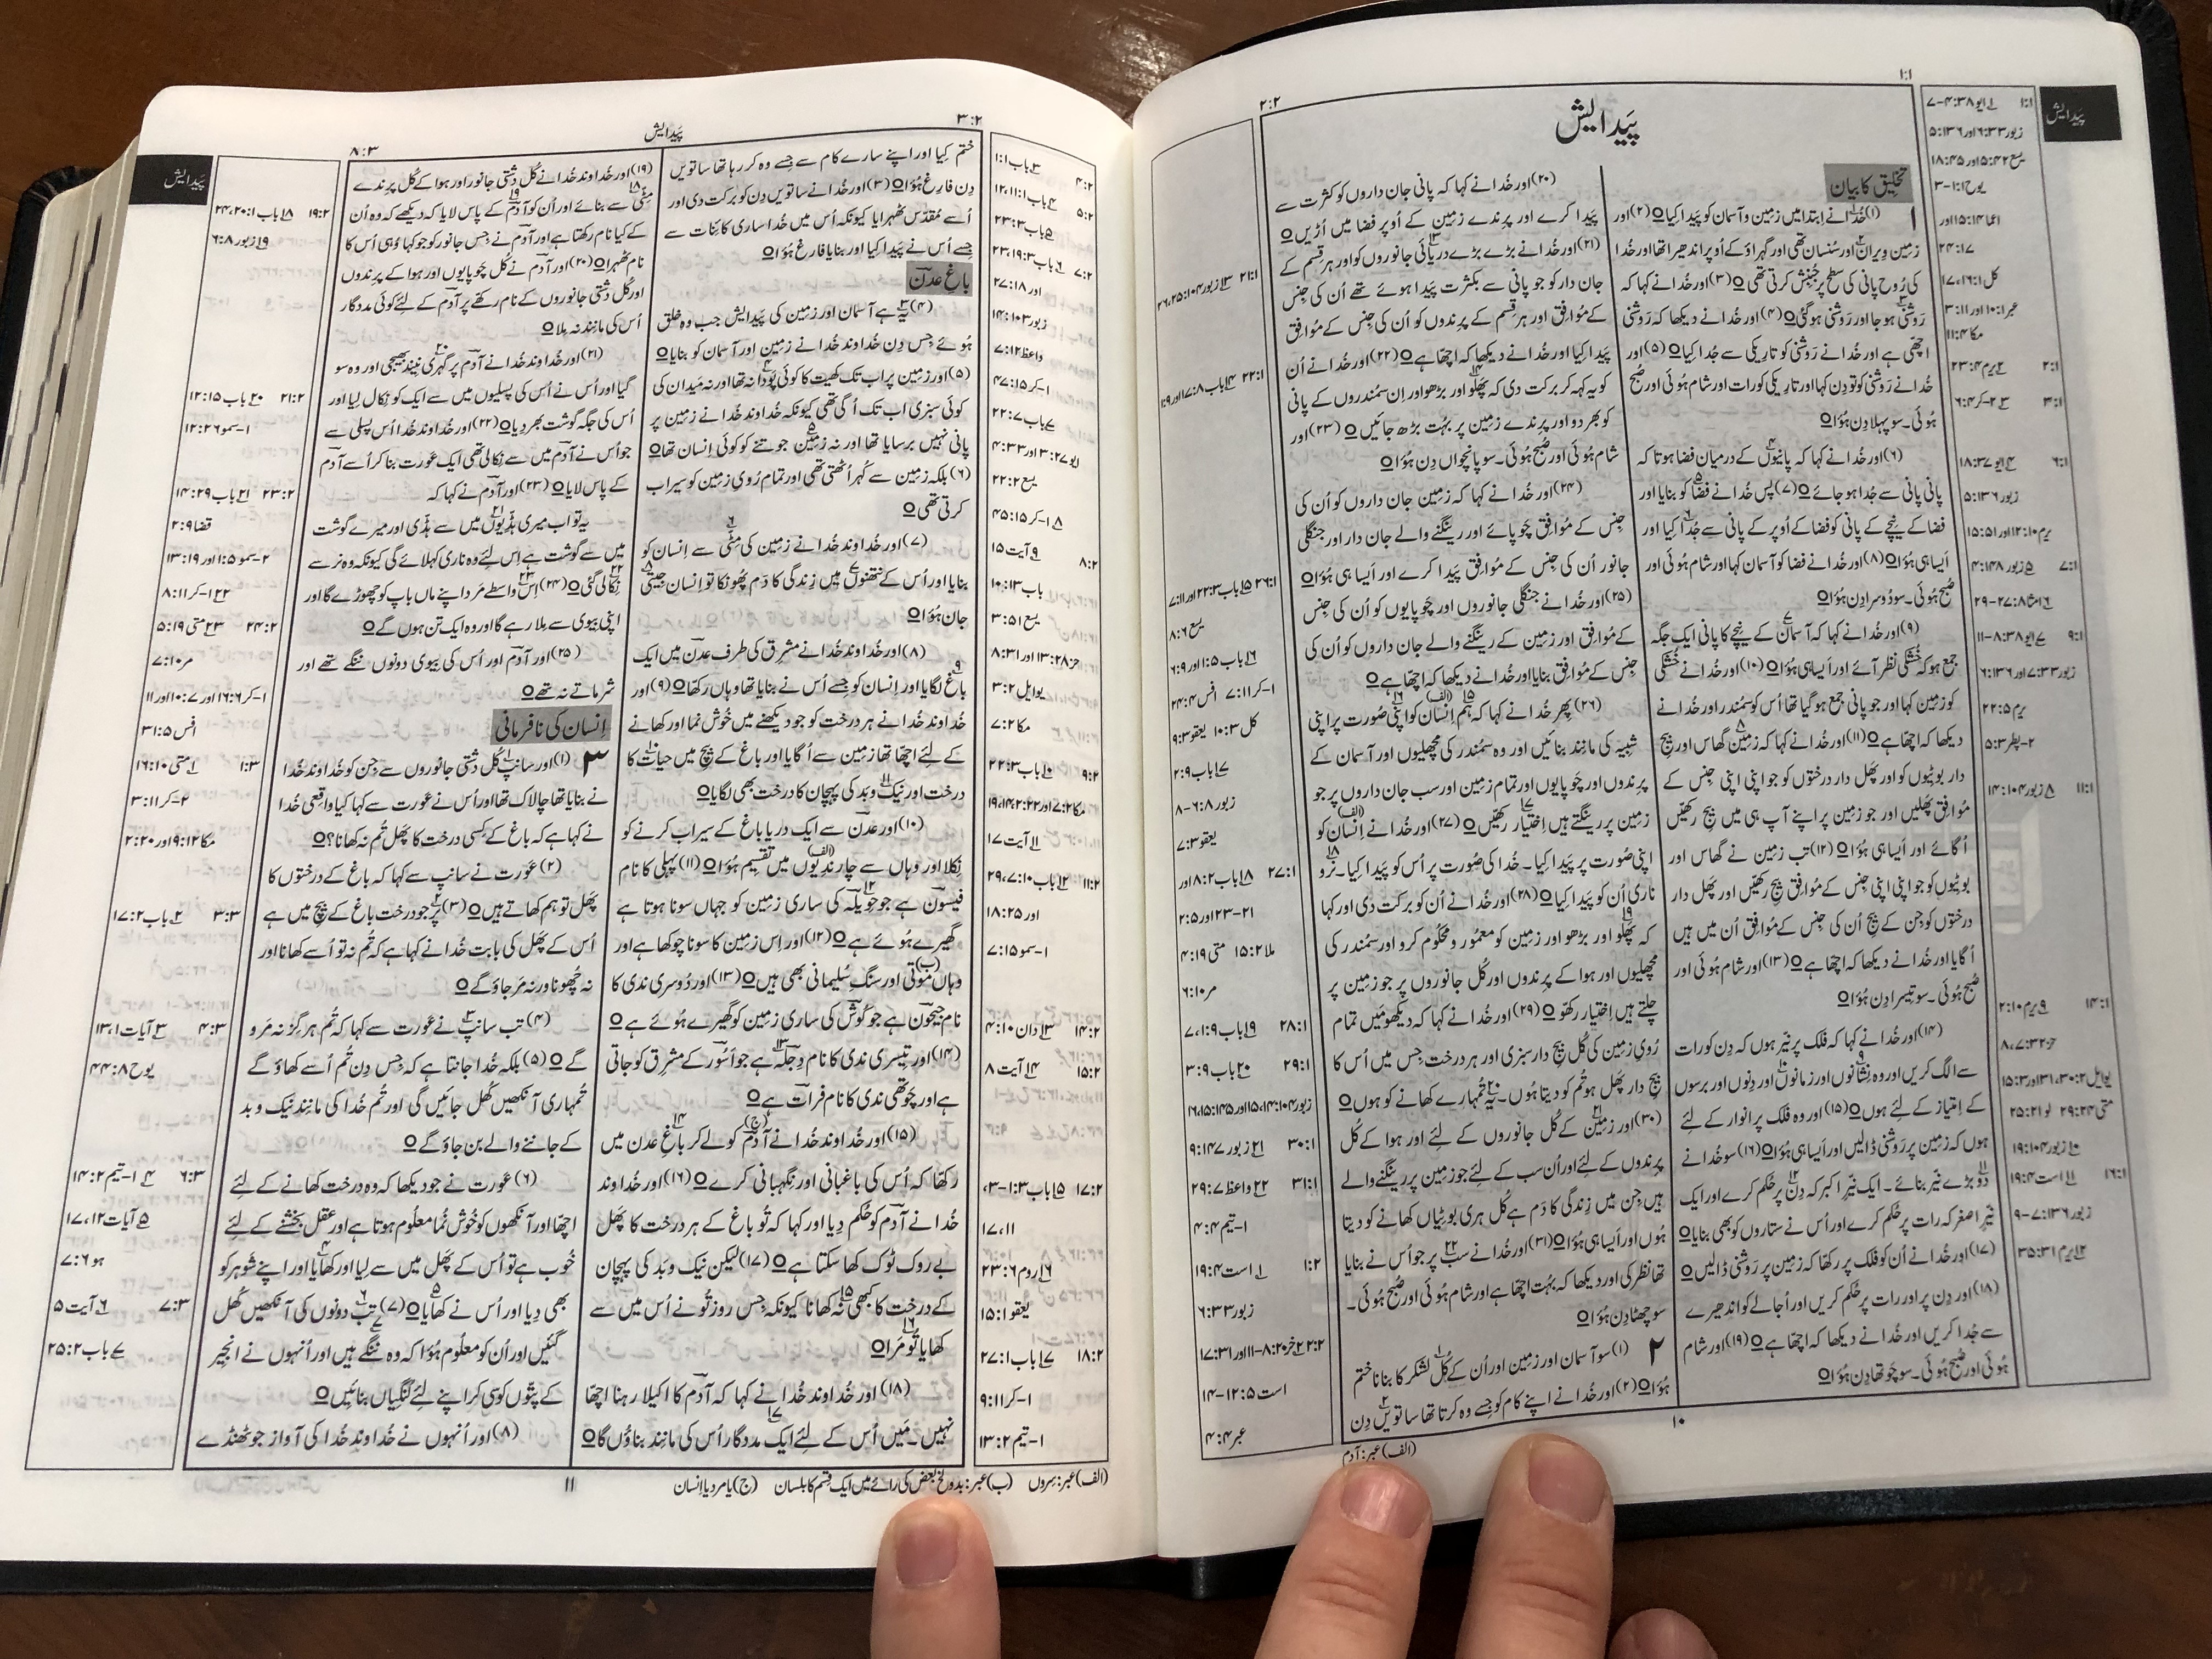 ۱:۱
۲:۲
پَیدایش
پَیدایش
تخلیق کا بیان
۱ (۱) خُدا نے اِبتدا میں زمِین و آسمان کو پَیدا کِیا۝ (۲) اور
زمِین وِیران اور سُنسان تھی اور گہراؤ کے اُوپر اندھیرا تھا اور خُدا
کی رُوح پانی کی سطح پر جُنبِش کرتی تھی۝ (۳) اور خُدا نے کہا کہ
رَوشنی ہو جا اور رَوشنی ہو گئی۝ (۴) اور خُدا نے دیکھا کہ رَوشنی
اچھّی ہے اور خُدا نے رَوشنی کو تارِیکی سے جُدا کِیا۝ (۵) اور
خُدا نے رَوشنی کو تو دِن کہا اور تارِیکی کو رات اور شام ہُوئی اور صُبح
ہُوئی۔ سو پہلا دِن ہُؤا۝
(۶) اور خُدا نے کہا کہ پانیوں کے درمیان فضا ہو تا کہ
پانی پانی سے جُدا ہو جائے۝ (۷) پس خُدا نے فضا کو بنایا اور
فضا کے نِیچے کے پانی کو فضا کے اُوپر کے پانی سے جُدا کِیا اور
اَیسا ہی ہُؤا۝ (۸) اور خُدا نے فضا کو آسمان کہا اور شام ہُوئی اور
صُبح ہُوئی۔ سو دُوسرا دِن ہُؤا۝
(۹) اور خُدا نے کہا کہ آسمان کے نِیچے کا پانی ایک جگہ
جمع ہو کہ خُشکی نظر آئے اور اَیسا ہی ہُؤا۝ (۱۰) اور خُدا نے خُشکی
کو زمِین کہا اور جو پانی جمع ہو گیا تھا اُس کو سمُندر اور خُدا نے
دیکھا کہ اچھّا ہے۝ (۱۱) اور خُدا نے کہا کہ زمِین گھاس اور بیج
دار بُوٹیوں کو اور پَھل دار درختوں کو جو اپنی اپنی جِنس کے
مُوافِق پَھلیں اور جو زمِین پر اپنے آپ ہی میں بیج رکھّیں
اُگائے اور اَیسا ہی ہُؤا۝ (۱۲) تب زمِین نے گھاس اور
بُوٹیوں کو جو اپنی اپنی جِنس کے مُوافِق بیج رکھّیں اور پَھل دار
درختوں کو جِن کے بیج اُن کی جِنس کے مُوافِق اُن میں ہیں
اُگایا اور خُدا نے دیکھا کہ اچھّا ہے۝ (۱۳) اور شام ہُوئی اور
صُبح ہُوئی۔ سو تِیسرا دِن ہُؤا۝
(۱۴) اور خُدا نے کہا کہ فلک پر نیّر ہوں کہ دِن کو رات
سے الگ کریں اور وہ نِشانوں اور زمانوں اور دِنوں اور برسوں
کے اِمتیاز کے لِئے ہوں۝ (۱۵) اور وہ فلک پر انوار کے لِئے
ہوں کہ زمِین پر رَوشنی ڈالیں اور اَیسا ہی ہُؤا۝ (۱۶) سو خُدا نے
دو بڑے نیّر بنائے۔ ایک نیّرِ اکبر کہ دِن پر حُکم کرے اور ایک
نیّرِ اصغر کہ رات پر حُکم کرے اور اُس نے ستاروں کو بھی بنایا۝
(۱۷) اور خُدا نے اُن کو فلک پر رکھّا کہ زمِین پر رَوشنی ڈالیں۝
(۱۸) اور دِن پر اور رات پر حُکم کریں اور اُجالے کو اندھیرے
سے جُدا کریں اور خُدا نے دیکھا کہ اچھّا ہے۝ (۱۹) اور شام
ہُوئی اور صُبح ہُوئی۔ سو چَوتھا دِن ہُؤا۝
(۲۰) اور خُدا نے کہا کہ پانی جان داروں کو کثرت سے
پَیدا کرے اور پرِندے زمِین کے اُوپر فضا میں اُڑیں۝
(۲۱) اور خُدا نے بڑے بڑے دریائی جانوروں کو اور ہر قِسم کے
جان دار کو جو پانی سے بکثرت پَیدا ہوئے تھے اُن کی جِنس
کے مُوافِق اور ہر قِسم کے پرِندوں کو اُن کی جِنس کے مُوافِق
پَیدا کِیا اور خُدا نے دیکھا کہ اچھّا ہے۝ (۲۲) اور خُدا نے اُن
کو یہ کہہ کر برکت دی کہ پَھلو اور بڑھو اور اِن سمُندروں کے پانی
کو بھر دو اور پرِندے زمِین پر بُہت بڑھ جائیں۝ (۲۳) اور
شام ہُوئی اور صُبح ہُوئی۔ سو پانچواں دِن ہُؤا۝
(۲۴) اور خُدا نے کہا کہ زمِین جان داروں کو اُن کی
جِنس کے مُوافِق چَوپائے اور رینگنے والے جان دار اور جنگلی
جانور اُن کی جِنس کے مُوافِق پَیدا کرے اور اَیسا ہی ہُؤا۝
(۲۵) اور خُدا نے جنگلی جانوروں اور چَوپایوں کو اُن کی جِنس
کے مُوافِق اور زمِین کے رینگنے والے جان داروں کو اُن کی
جِنس کے مُوافِق بنایا اور خُدا نے دیکھا کہ اچھّا ہے۝
(۲۶) پِھر خُدا نے کہا کہ ہم اِنسان (الف) کو اپنی صُورت پر اپنی
شبِیہ کی مانِند بنائیں اور وہ سمُندر کی مچھلیوں اور آسمان کے
پرِندوں اور چَوپایوں اور تمام زمِین اور سب جان داروں پر جو
زمِین پر رینگتے ہیں اِختیار رکھّیں۝ (۲۷) اور خُدا نے اِنسان (الف) کو
اپنی صُورت پر پَیدا کِیا۔ خُدا کی صُورت پر اُس کو پَیدا کِیا۔ نر و
ناری اُن کو پَیدا کِیا۝ (۲۸) اور خُدا نے اُن کو برکت دی اور کہا
کہ پَھلو اور بڑھو اور زمِین کو معمُور و محکُوم کرو اور سمُندر کی
مچھلیوں اور ہوا کے پرِندوں اور کُل جانوروں پر جو زمِین پر
چلتے ہیں اِختیار رکھّو۝ (۲۹) اور خُدا نے کہا کہ دیکھو مَیں تمام
رُویِ زمِین کی کُل بیج دار سبزی اور ہر درخت جِس میں اُس کا
بیج دار پَھل ہو تُم کو دیتا ہُوں۔ یہ تُمہارے کھانے کو ہوں۝
(۳۰) اور زمِین کے کُل جانوروں کے لِئے اور ہوا کے کُل
پرِندوں کے لِئے اور اُن سب کے لِئے جو زمِین پر رینگنے والے
ہیں جِن میں زِندگی کا دَم ہے کُل ہری بُوٹیاں کھانے کو دیتا
ہُوں اور اَیسا ہی ہُؤا۝ (۳۱) اور خُدا نے سب پر جو اُس نے بنایا
تھا نظر کی اور دیکھا کہ بُہت اچھّا ہے اور شام ہُوئی اور صُبح ہُوئی۔
سو چھٹا دِن ہُؤا۝
۲ (۱) سو آسمان اور زمِین اور اُن کے کُل لشکر کا بنانا ختم
ہُؤا۝ (۲) اور خُدا نے اپنے کام کو جِسے وہ کرتا تھا ساتویں دِن
(الف) عبر: آدم
۱۰
۳:۲
پَیدایش
۸:۳
پَیدایش
ختم کِیا اور اپنے سارے کام سے جِسے وہ کر رہا تھا ساتویں
دِن فارِغ ہُؤا۝ (۳) اور خُدا نے ساتویں دِن کو برکت دی اور
اُسے مُقدّس ٹھہرایا کیونکہ اُس میں خُدا ساری کائنات سے
جِسے اُس نے پَیدا کِیا اور بنایا فارِغ ہُؤا۝
باغِ عدن
(۴) یہ ہے آسمان اور زمِین کی پَیدایش جب وہ خلق
ہُوئے جِس دِن خُداوند خُدا نے زمِین اور آسمان کو بنایا۝
(۵) اور زمِین پر اب تک کھیت کا کوئی پَودا نہ تھا اور نہ مَیدان کی
کوئی سبزی اب تک اُگی تھی کیونکہ خُداوند خُدا نے زمِین پر
پانی نہیں برسایا تھا اور نہ زمِین جوتنے کو کوئی اِنسان تھا۝
(۶) بلکہ زمِین سے کُہر اُٹھتی تھی اور تمام رُویِ زمِین کو سیراب
کرتی تھی۝
(۷) اور خُداوند خُدا نے زمِین کی مِٹّی سے اِنسان کو
بنایا اور اُس کے نتھنوں میں زِندگی کا دَم پُھونکا تو اِنسان جِیتی
جان ہُؤا۝
(۸) اور خُداوند خُدا نے مشرِق کی طرف عدن میں ایک
باغ لگایا اور اِنسان کو جِسے اُس نے بنایا تھا وہاں رکھّا۝ (۹) اور
خُداوند خُدا نے ہر درخت کو جو دیکھنے میں خُوش نُما اور کھانے
کے لِئے اچھّا تھا زمِین سے اُگایا اور باغ کے بیچ میں حیات کا
درخت اور نیک و بد کی پہچان کا درخت بھی لگایا۝
(۱۰) اور عدن سے ایک دریا باغ کے سیراب کرنے کو
نِکلا اور وہاں سے چار ندیوں (الف) میں تقسِیم ہُؤا۝ (۱۱) پہلی کا نام
فیسون ہے جو حوِیلہ کی ساری زمِین کو جہاں سونا ہوتا ہے
گھیرے ہُوئے ہے۝ (۱۲) اور اِس زمِین کا سونا چوکھا ہے اور
وہاں موتی (ب) اور سنگِ سُلیمانی بھی ہیں۝ (۱۳) اور دُوسری ندی کا
نام جیحون ہے جو کُوش کی ساری زمِین کو گھیرے ہُوئے ہے۝
(۱۴) اور تِیسری ندی کا نام دِجلہ ہے جو اسُور کے مشرِق کو جاتی
ہے اور چَوتھی ندی کا نام فرات ہے۝
(۱۵) اور خُداوند خُدا نے آدم (ج) کو لے کر باغِ عدن میں
رکھّا کہ اُس کی باغبانی اور نِگہبانی کرے۝ (۱۶) اور خُداوند
خُدا نے آدم کو حُکم دِیا اور کہا کہ تُو باغ کے ہر درخت کا پَھل
بے روک ٹوک کھا سکتا ہے۝ (۱۷) لیکن نیک و بد کی پہچان
کے درخت کا کبھی نہ کھانا کیونکہ جِس روز تُو نے اُس میں سے
کھایا تُو مَرا۝
(۱۸) اور خُداوند خُدا نے کہا کہ آدم کا اکیلا رہنا اچھّا
نہیں۔ مَیں اُس کے لِئے ایک مددگار اُس کی مانِند بناؤں گا۝
(۱۹) اور خُداوند خُدا نے کُل دشتی جانور اور ہوا کے کُل پرِندے
مِٹّی سے بنائے اور اُن کو آدم کے پاس لایا کہ دیکھے کہ وہ اُن
کے کیا نام رکھتا ہے اور آدم نے جِس جانور کو جو کہا وُہی اُس کا
نام ٹھہرا۝ (۲۰) اور آدم نے کُل چَوپایوں اور ہوا کے پرِندوں
اور کُل دشتی جانوروں کے نام رکھّے پر آدم کے لِئے کوئی مددگار
اُس کی مانِند نہ مِلا۝
(۲۱) اور خُداوند خُدا نے آدم پر گہری نِیند بھیجی اور وہ سو
گیا اور اُس نے اُس کی پسلیوں میں سے ایک کو نِکال لِیا اور
اُس کی جگہ گوشت بھر دِیا۝ (۲۲) اور خُداوند خُدا اُس پسلی سے
جو اُس نے آدم میں سے نِکالی تھی ایک عَورت بنا کر اُسے آدم
کے پاس لایا۝ (۲۳) اور آدم نے کہا کہ
یہ تو اب میری ہڈّیوں میں سے ہڈّی اور میرے گوشت
میں سے گوشت ہے اِس لِئے وہ ناری کہلائے گی کیونکہ وہ نر سے
نِکالی گئی۝ (۲۴) اِس واسطے مَرد اپنے ماں باپ کو چھوڑے گا اور
اپنی بِیوی سے مِلا رہے گا اور وہ ایک تن ہوں گے۝
(۲۵) اور آدم اور اُس کی بِیوی دونوں ننگے تھے اور
شرماتے نہ تھے۝
اِنسان کی نافرمانی
۳ (۱) اور سانپ کُل دشتی جانوروں سے جِن کو خُداوند خُدا
نے بنایا تھا چالاک تھا اور اُس نے عَورت سے کہا کیا واقِعی خُدا
نے کہا ہے کہ باغ کے کِسی درخت کا پَھل تُم نہ کھانا؟۝
(۲) عَورت نے سانپ سے کہا کہ باغ کے درختوں کا
پَھل تو ہم کھاتے ہیں۝ (۳) پر جو درخت باغ کے بیچ میں ہے
اُس کے پَھل کی بابت خُدا نے کہا ہے کہ تُم نہ تو اُسے کھانا اور
نہ چُھونا ورنہ مَر جاؤ گے۝
(۴) تب سانپ نے عَورت سے کہا کہ تُم ہرگِز نہ مَرو
گے۝ (۵) بلکہ خُدا جانتا ہے کہ جِس دِن تُم اُسے کھاؤ گے
تُمہاری آنکھیں کُھل جائیں گی اور تُم خُدا کی مانِند نیک و بد
کے جاننے والے بن جاؤ گے۝
(۶) عَورت نے جو دیکھا کہ وہ درخت کھانے کے لِئے
اچھّا اور آنکھوں کو خُوش نُما معلُوم ہوتا ہے اور عقل بخشنے کے لِئے
خُوب ہے تو اُس کے پَھل میں سے لِیا اور کھایا اور اپنے شَوہر کو
بھی دِیا اور اُس نے کھایا۝ (۷) تب دونوں کی آنکھیں کُھل
گئیں اور اُن کو معلُوم ہُؤا کہ وہ ننگے ہیں اور اُنہوں نے انجِیر
کے پتّوں کو سی کر اپنے لِئے لُنگیاں بنائیں۝
(۸) اور اُنہوں نے خُداوند خُدا کی آواز جو ٹھنڈے
(الف) عبر: سِروں (ب) عبر: بدولخ بعض کی رائے میں ایک قِسم کا بلسان (ج) یا مرد یا اِنسان
۱۱